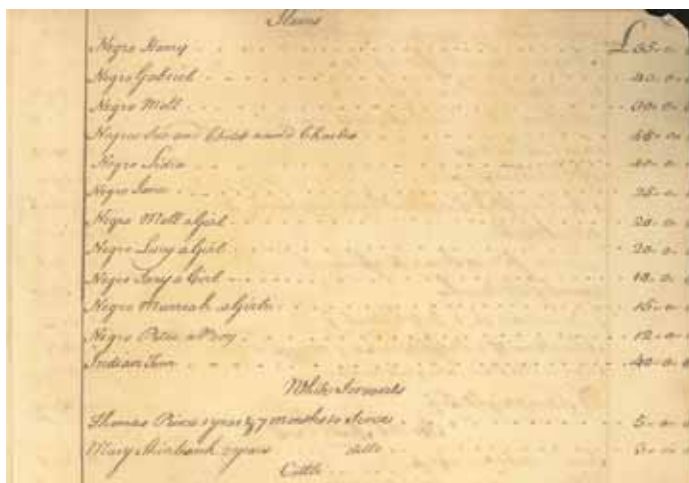 Slaves
Negro Harry £ 35-0-0
Negro Gabriel 40-0-0
Negro Moll 30-0-0
Negroe Sue and Child named Charles 45-0-0
Negro 40-0-0
Negro Jane 25-0-0
Negro Moll a Girl 20-0-0
Negro Lucy a Girl 20-0-0
Negro a Girl 18-0-0
Negro Murreah a Girl 15-0-0
Negro Peter a Boy 12-0-0
Indian 40-0-0
White Servants
Thomas Price 1 year & 7 months to Serve 5-0-0
Mary 2 years ditto 3-0-0
Cattle